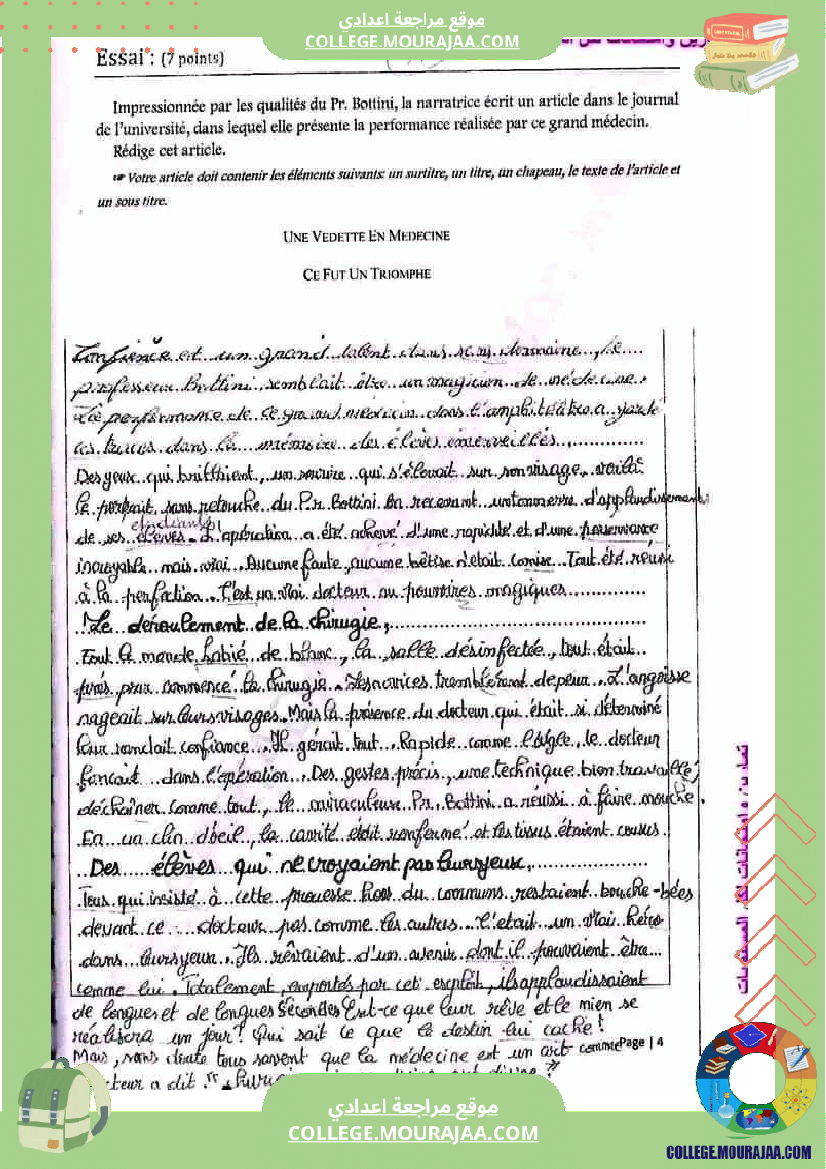 موقع مراجعة اعدادي
COLLEGE.MOURAJAA.COM
Essai : (7 points)
Impressionnée par les qualités du Pr. Bottini, la narratrice écrit un article dans le journal
de l'université, dans lequel elle présente la performance réalisée par ce grand médecin.
Rédige cet article.
☞ Votre article doit contenir les éléments suivants: un surtitre, un titre, un chapeau, le texte de l'article et
un sous titre.
UNE VEDETTE EN MEDECINE
CE FUT UN TRIOMPHE
et un grand talent dans son domaine, le
professeur Bottini semblait être un magicien de médecine.
La performance de ce grand médecin dans l'amphithéâtre a
les traces dans la mémoire des élèves émerveillés
Des yeux qui brillaient, un sourire qui s'élevait sur son visage, voilà
le portrait sans retouche du Pr. Bottini en recevant un tonnerre d'applaudissements
étudiants
de ses élèves. L'opération a été achevé d'une rapidité et d'une
incroyable mais vrai. Aucune faute, aucune bêtise n'était comise. Tout été réussi
à la perfection. C'est un vrai docteur au pouvoires magiques
Le déroulement de la chirugie,
Tout le monde habié de blanc, la salle désinfectée, tout était
près pour commencé la chirugie. Les novices tremblèrent de peur. L'angoisse
nageait sur leurs visages. Mais la présence du docteur qui était si déterminé
leur rendait confiance. Il gérait tout. Rapide comme l'aigle, le docteur
fonçait dans l'opération. Des gestes précis, une technique bien travaillé,
déchaîner comme tout, le miraculeux Pr. Bottini a réussi à faire mouche.
En un clin d'oeil, la cavité était renfermé et les tissus étaient cousus.
Des élèves qui ne croyaient pas leurs yeux,
Tous qui insisté à cette prouesse hors du communs restaient bouche-bées
devant ce docteur pas comme les autres. C'etait un vrai héro
dans leurs yeux. Ils rêvaient d'un avenir dont il pouvaient être
comme lui. Totalement emportés par cet exploit, ils applaudissaient
de longues et de longues secondes Est-ce que leur rêve et le mien se
réalisera un jour? Qui sait ce que le destin lui cache!
Mais, sans doute tous savent que la médecine est un art comme
Page | 4
teur a dit :"
موقع مراجعة اعدادي
COLLEGE.MOURAJAA.COM
COLLEGE.MOURAJAA.COM